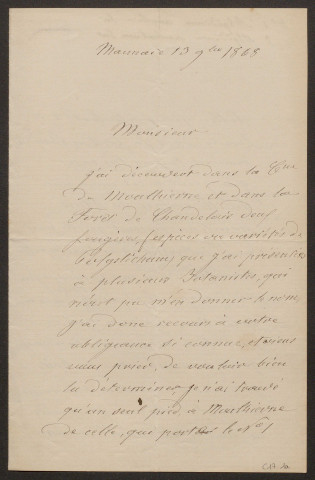 13 9bre 1868
Monsieur
J'ai découvert dans la
de Mouthierne et dans la
Forêt de Chandelois deux
fougères, espèces ou variétés de
Polystichum, que j'ai présentées
à plusieurs Botanistes, qui
n'ont pu m'en donner le nom,
j'ai donc recours à votre
obligeance si connue, et viens
vous prier, de vouloir bien
la déterminer, je n'ai trouvé
qu'un seul pied, à Mouthierne
de celle, qui porte le N° 1